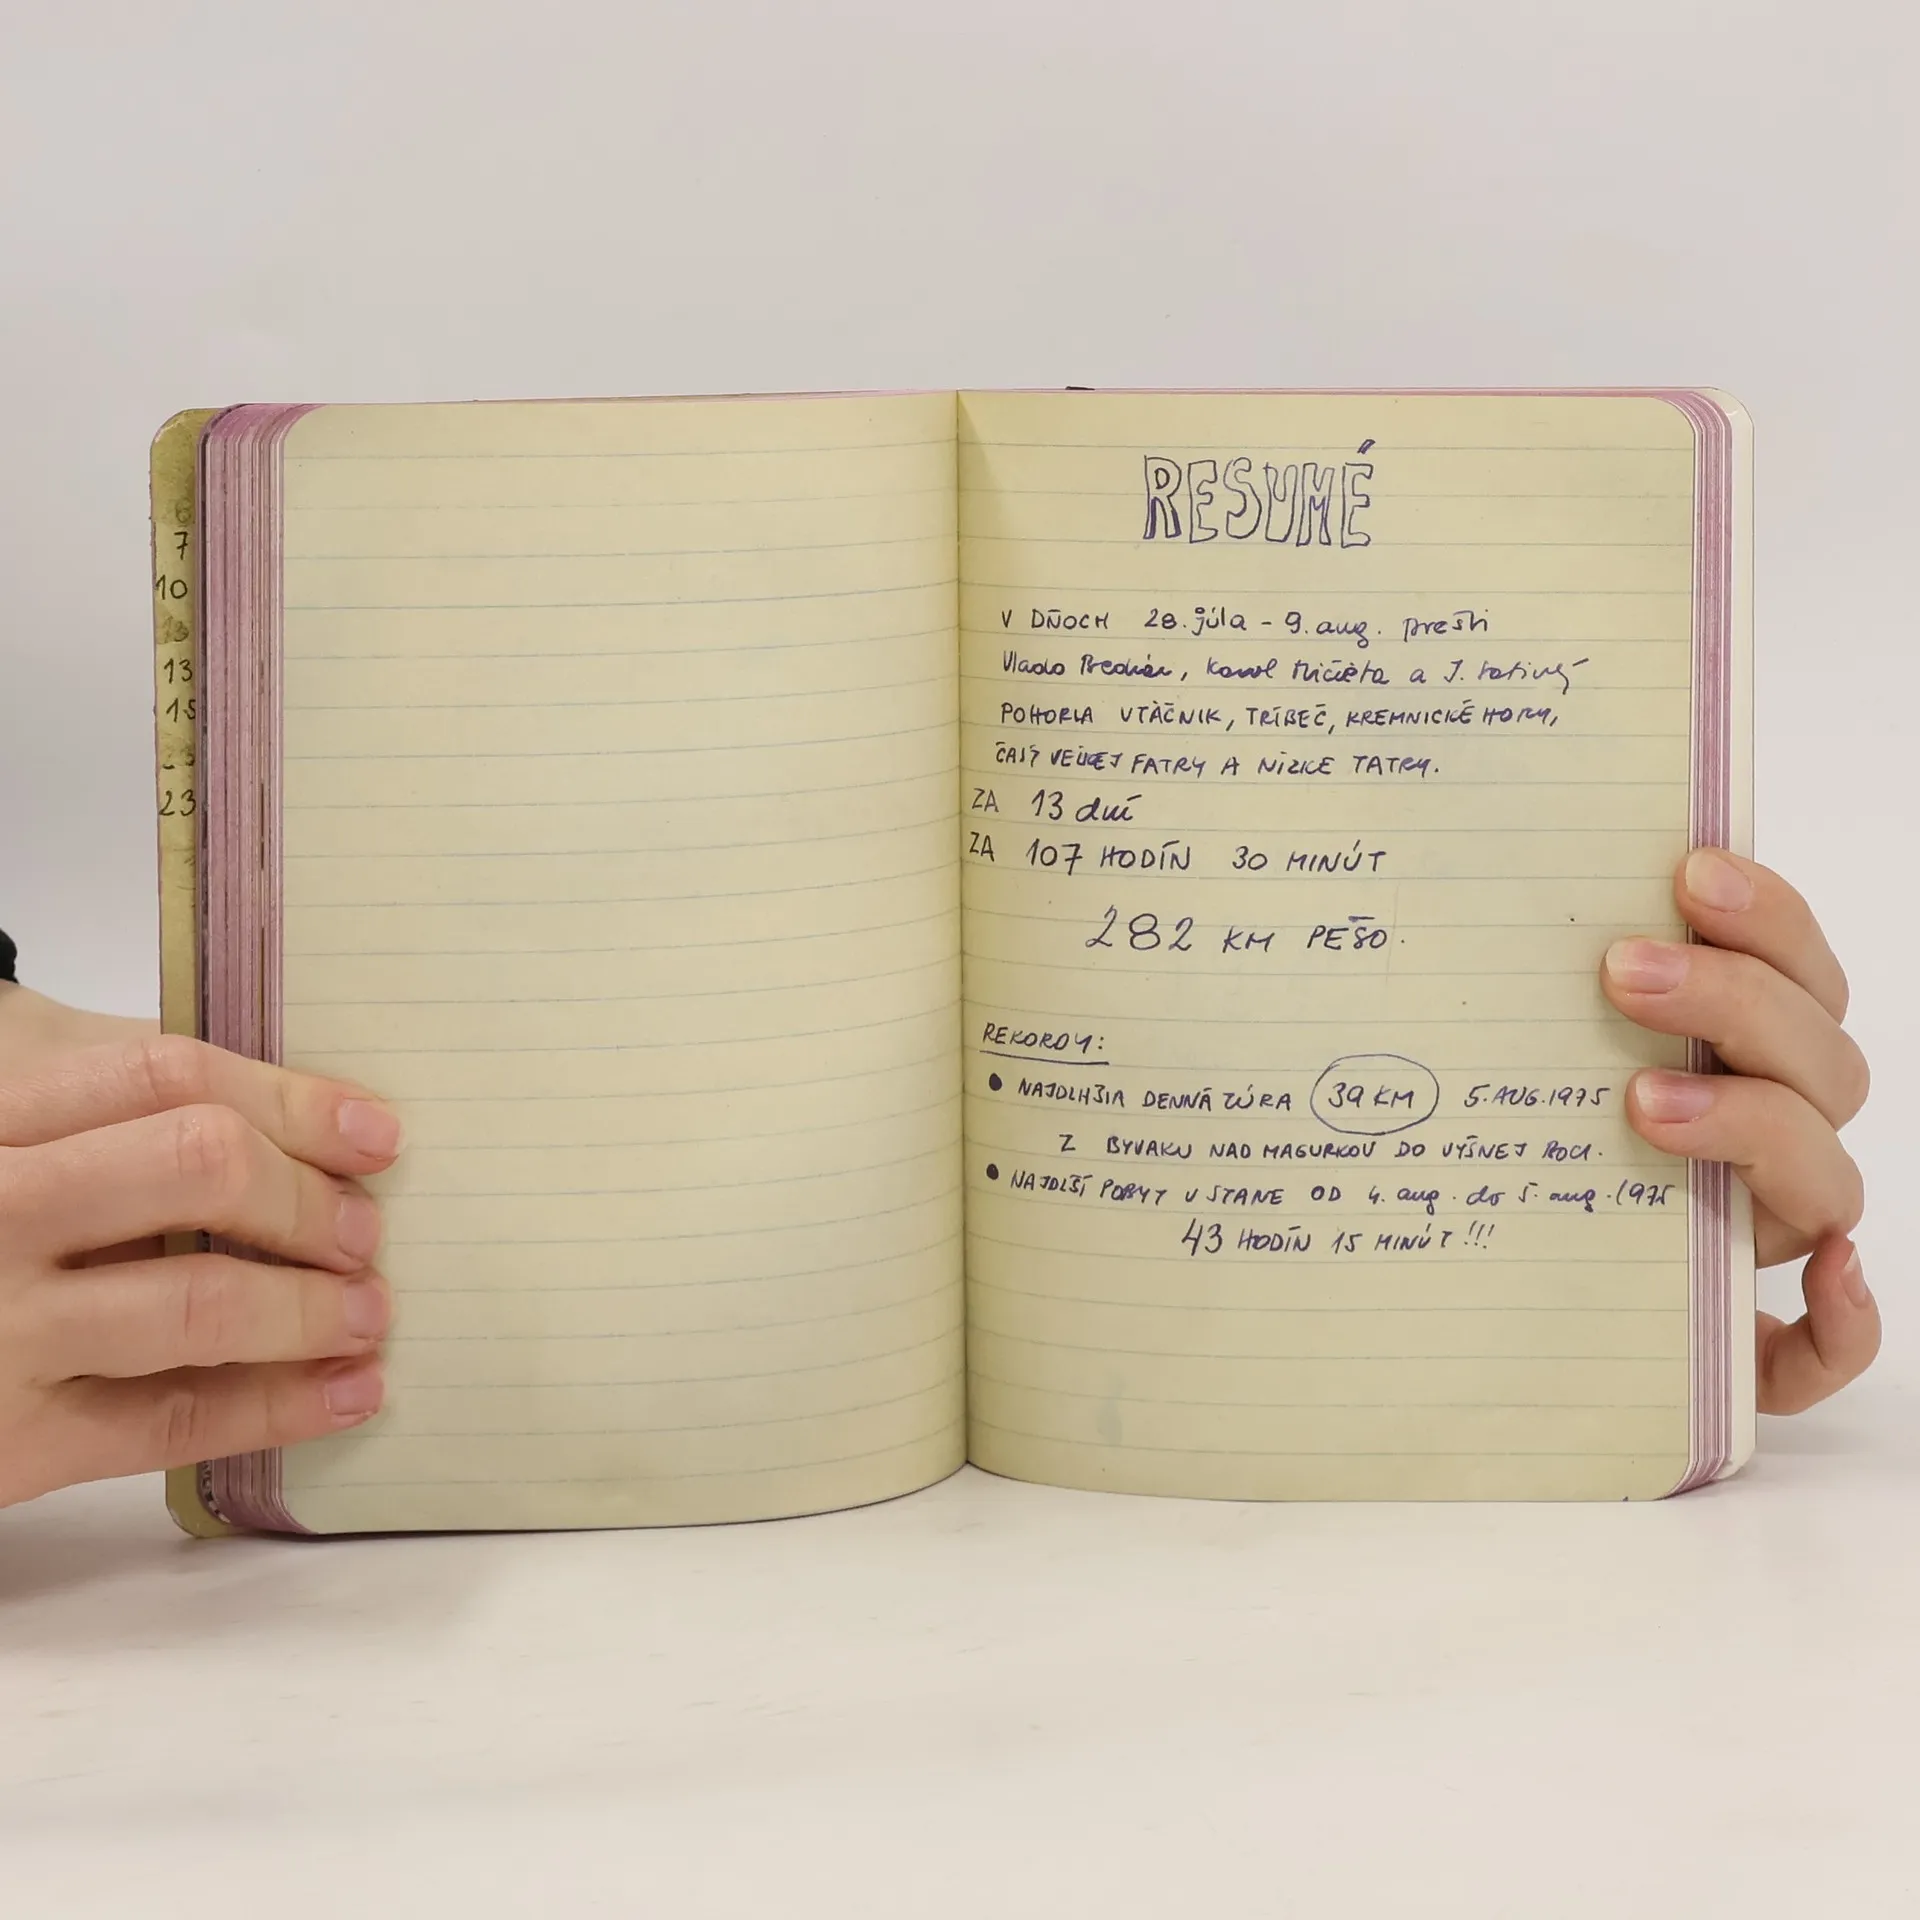 6
7
10
13
13
15
23
23
RESUMÉ
V DŇOCH 28. júla - 9. aug. prešli
Vlado Bednár, Karol Mičieta a J.
POHORIA VTÁČNIK, TRÍBEČ, KREMNICKÉ HORY,
ČASŤ VEĽKEJ FATRY A NÍZKE TATRY.
ZA 13 dní
ZA 107 HODÍN 30 MINÚT
282 KM PEŠO.
REKORDY:
● NAJDLHŠIA DENNÁ TÚRA 39 KM 5. AUG. 1975
Z BYVAKU NAD MAGURKOU DO VYŠNEJ BOCI.
● NAJDLŠÍ POBYT V STANE OD 4. aug. do 5. aug. 1975
43 HODÍN 15 MINÚT !!!